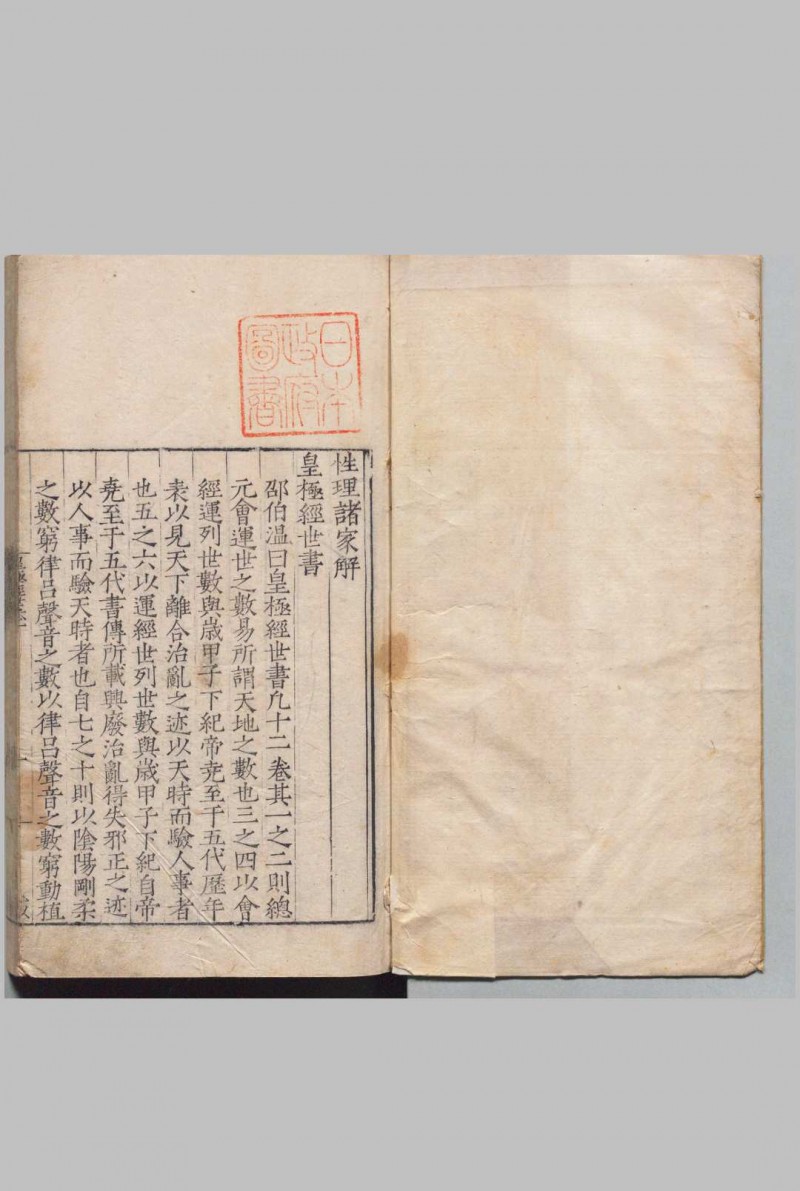 日本
政府
圖書
性理諸家解
皇極經世書
邵伯溫曰皇極經世書凡十二卷其一之二則總
元會運世之數易所謂天地之數也三之四以會
經運列世數與歲甲子下紀帝堯至于五代歷年
表以見天下離合治亂之迹以天時而驗人事者
也五之六以運經世列世數與歲甲子下紀自帝
堯至于五代書傳所載興廢治亂得失邪正之迹
以人事而驗天時者也自七之十則以陰陽剛柔
之數窮律呂聲音之數以律呂聲音之數窮動植